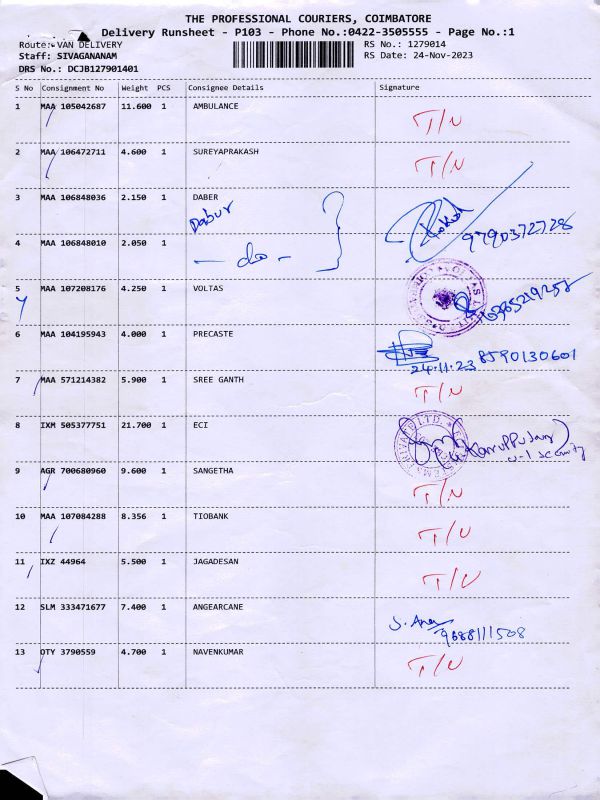 THE PROFESSIONAL COURIERS, COIMBATORE
Delivery Runsheet - P103 - Phone No.:0422-3505555 - Page No.:1
Route: VAN DELIVERY RS No.: 1279014
Staff: SIVAGANANAM RS Date: 24-Nov-2023
DRS No.: DCJB127901401
S No Consignment No Weight PCS Consignee Details Signature
1 MAA 105042687 11.600 1 AMBULANCE T/N
2 MAA 106472711 4.600 1 SUREYAPRAKASH T/N
3 MAA 106848036 2.150 1 DABER
Dabur 9790372728
4 MAA 106848010 2.050 1 - do -
5 MAA 107208176 4.250 1 VOLTAS
6 MAA 104195943 4.000 1 PRECASTE
24.11.23 8590130601
7 MAA 571214382 5.900 1 SREE GANTH T/N
8 IXM 505377751 21.700 1 ECI
9 AGR 700680960 9.600 1 SANGETHA T/N
10 MAA 107084288 8.356 1 TIOBANK T/N
11 IXZ 44964 5.500 1 JAGADESAN T/N
12 SLM 333471677 7.400 1 ANGEARCANE
9688111508
13 OTY 3790559 4.700 1 NAVENKUMAR T/N